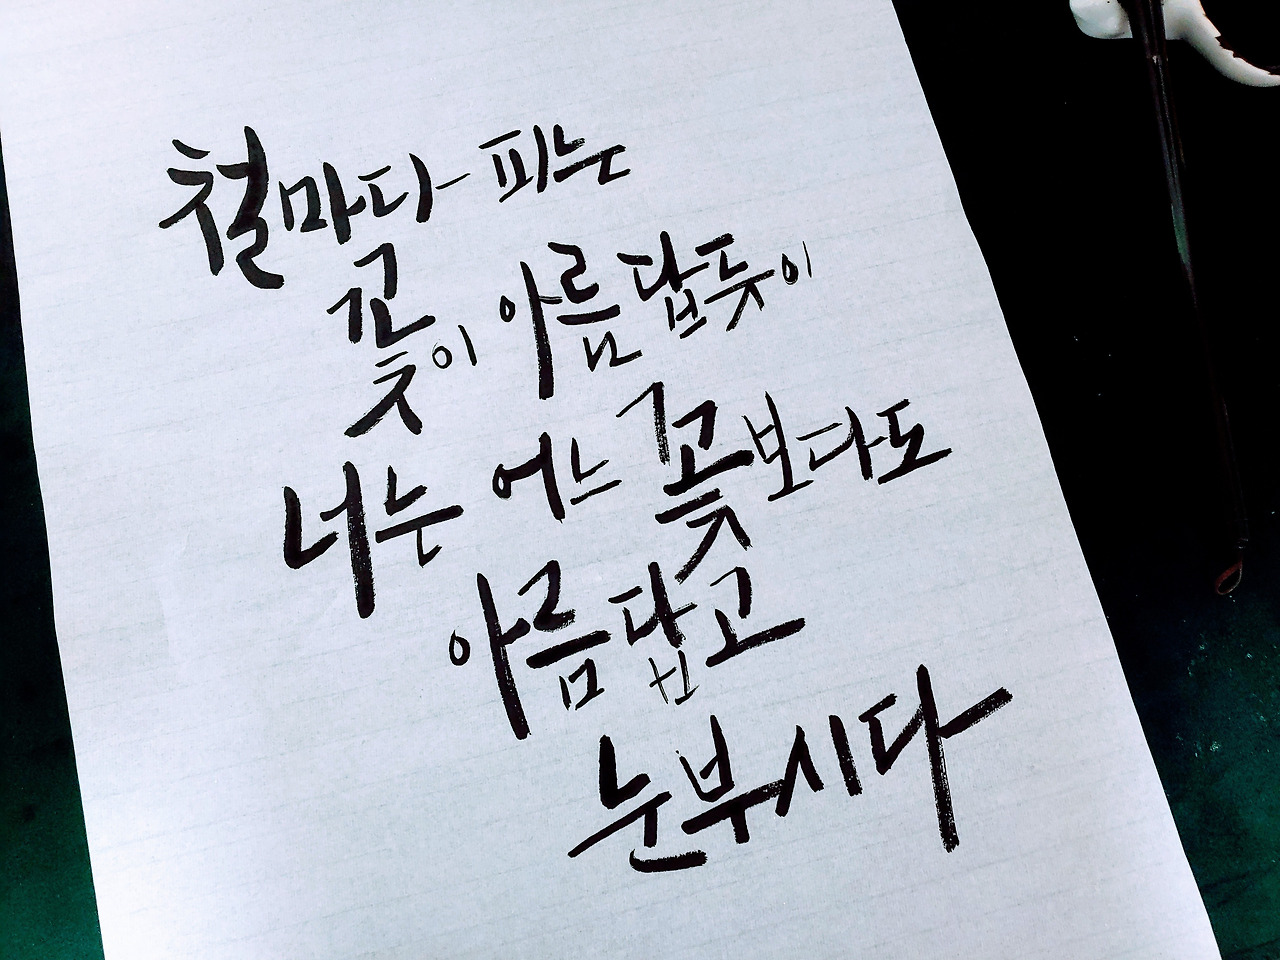 철마다 피는
꽃이 아름답듯이
너는 어느 꽃보다도
아름답고
눈부시다